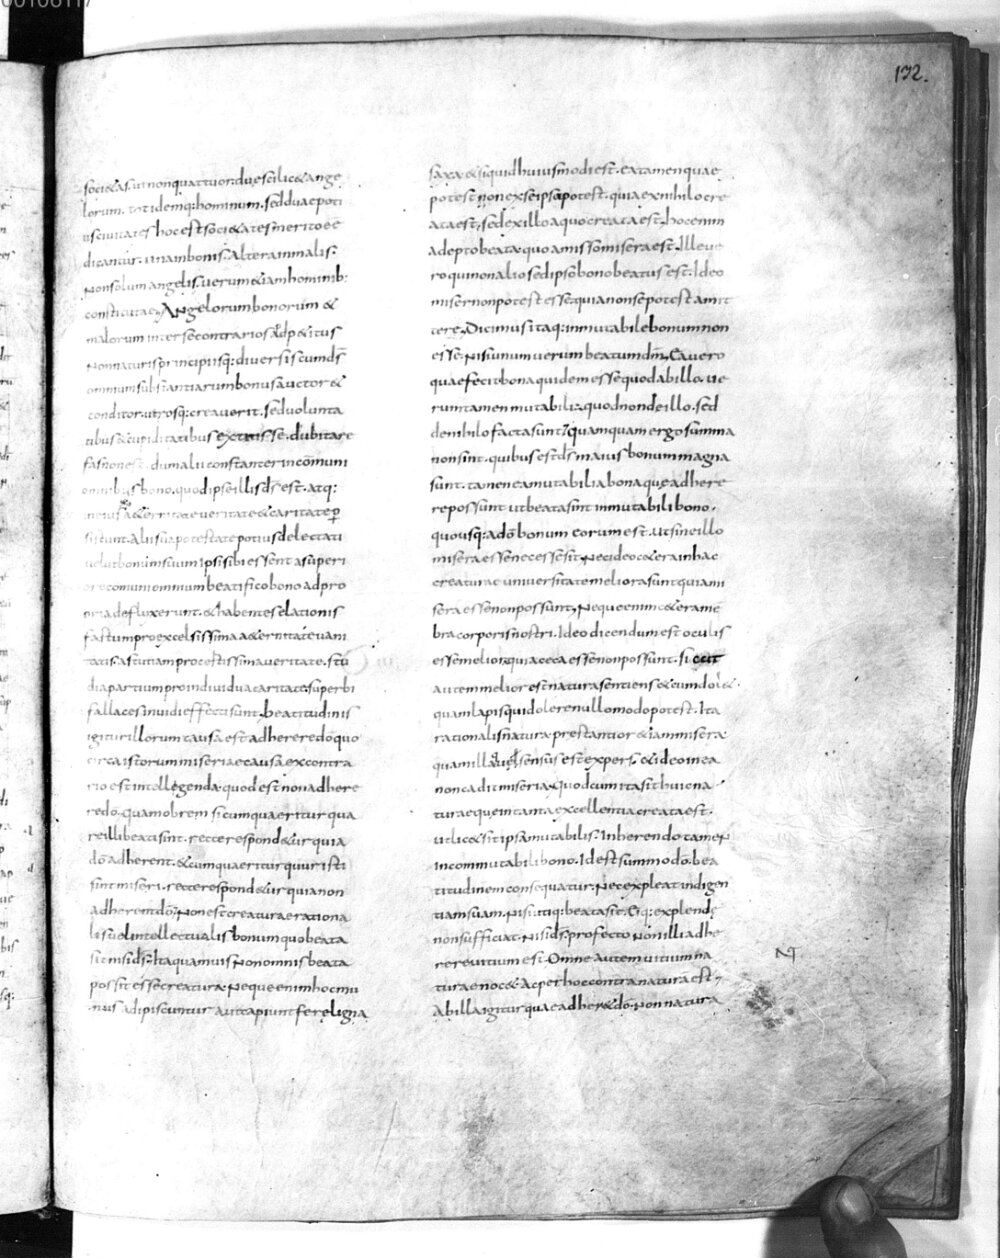 132.
soci&as. ut non quattuor. duae scilic& ange
lorum. totidemq: hominum. sed duae poti
us ciuitates hoc est soci&ates merito ee
dicantur. una in bonis. altera in malis.
Non solum angelis. uerum &iam hominib:
constitutae; Angelorum bonorum &
malorum inter se contrarios adp&itus
Non naturis principiisq: diuersis cum ds̄
omnium substantiarum bonus auctor &
conditor. utrosq: creauerit. sed uolunta
tibus & cupiditatibus extitisse. dubitare
fas non est. dum alii constanter in cōmuni
omnibus bono. quod ipse illis ds̄ est. atq:
in eius a&ernitate ueritate & caritate p̄
sistunt. alii sua potestate potius delectati
uelut bonum suum ipsi sibi essent a superi
ore communi omnium beatifico bono ad pro
pria defluxerunt. & habentes elationis
fastum pro excelsissima a&ernitate uani
tatis astutiam pro certissima ueritate. stu
dia partium pro indiuidua caritate superbi
fallaces inuidi effecti sunt. beatitudinis
igitur illorum causa est adherere dō quo
circa istorum miseriae causa ex contra
rio est intellegenda. quod est non adhere
re dō. Quam obrem si cum quaeritur qua
re illi beati sint. recte respond&ur quia
dō adherent. & cum quaeritur quur isti
sint miseri. recte respond&ur quia non
adherent dō; Non est creaturae rationa
lis uel intellectualis bonum quo beata
sit nisi ds̄. Ita quamuis non omnis beata
possit esse creatura. Neque enim hoc mu
nus adipiscuntur aut capiunt ferae ligna
saxa & siquid huiusmodi est. ea tamen quae
potest non ex se ipsa potest. quia ex nihilo cre
ata est, sed ex illo a quo creata est. hoc enim
adepto beata. quo amisso misera est. Ille ue
ro qui non alio sed ipso bono beatus est. Ideo
miser non potest esse. quia non se potest amit
tere; Dicimus itaq: inmutabile bonum non
esse. Nisi unum uerum beatum dm̄. Ea uero
quae fecit bona quidem esse quod ab illo. ue
rum tamen mutabilia. quod non de illo. sed
de nihilo facta sunt; Quamquam ergo summa
non sint. quibus est ds̄ maius bonum magna
sunt. tamen ea mutabilia bona quae adhere
re possunt ut beata sint inmutabili bono.
quousq: adō bonum eorum est. ut sine illo
misera esse necesse sit. Nec ideo c&era in hac
creaturae uniuersitate meliora sunt quia mi
sera esse non possunt; Neque enim c&era mē
bra corporis nostri. Ideo dicendum est oculis
esse meliora. quia ceca esse non possunt. sicut
autem melior est natura sentiens & cum dol&
quam lapis qui dolere nullo modo potest. Ita
rationalis natura prestantior &iam misera
quam illa quae sensus est expers. & ideo in ea
non cadit miseria. Quod cum ita sit huic na
turae que in tanta excellentia creata est.
ut lic& sit ipsa mutabilis. Inherendo tamen
incommutabili bono. Id est summo dō. bea
titudinem consequatur. Nec expleat indigen
tiam suam. Nisi utiq: beata sit. Eiq: explendę
non sufficiat. Nisi ds̄. profecto non illi adhe
rere uitium est. Omne autem uitium na
turae noc&. Ac per hoc contra natura est;
Ab illa igitur quae adher& dō. Non natura